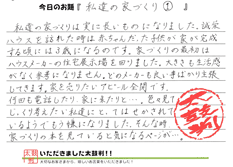 今日のお題『私達の家づくり①』
私達の家づくりは実に長いものになりました。誠栄
ハウスを訪れた時は赤ちゃんだった子供が家が完成
する頃には3歳になるのです。家づくりの最初は
ハウスメーカーの住宅展示場を回りました。大きさも生活感
がなく参考になりません。どのメーカーも良い事ばかり強張
してきます。家を売りたいアピール全開です。
何回も電話したり、家に来たりと…。色々見て
じっくり考えたい私達にと、てはせかされて
いるような思いを感じました。そんな時
家づくりの本を見ていると気になるページが…。
いただきました大鼓判!!